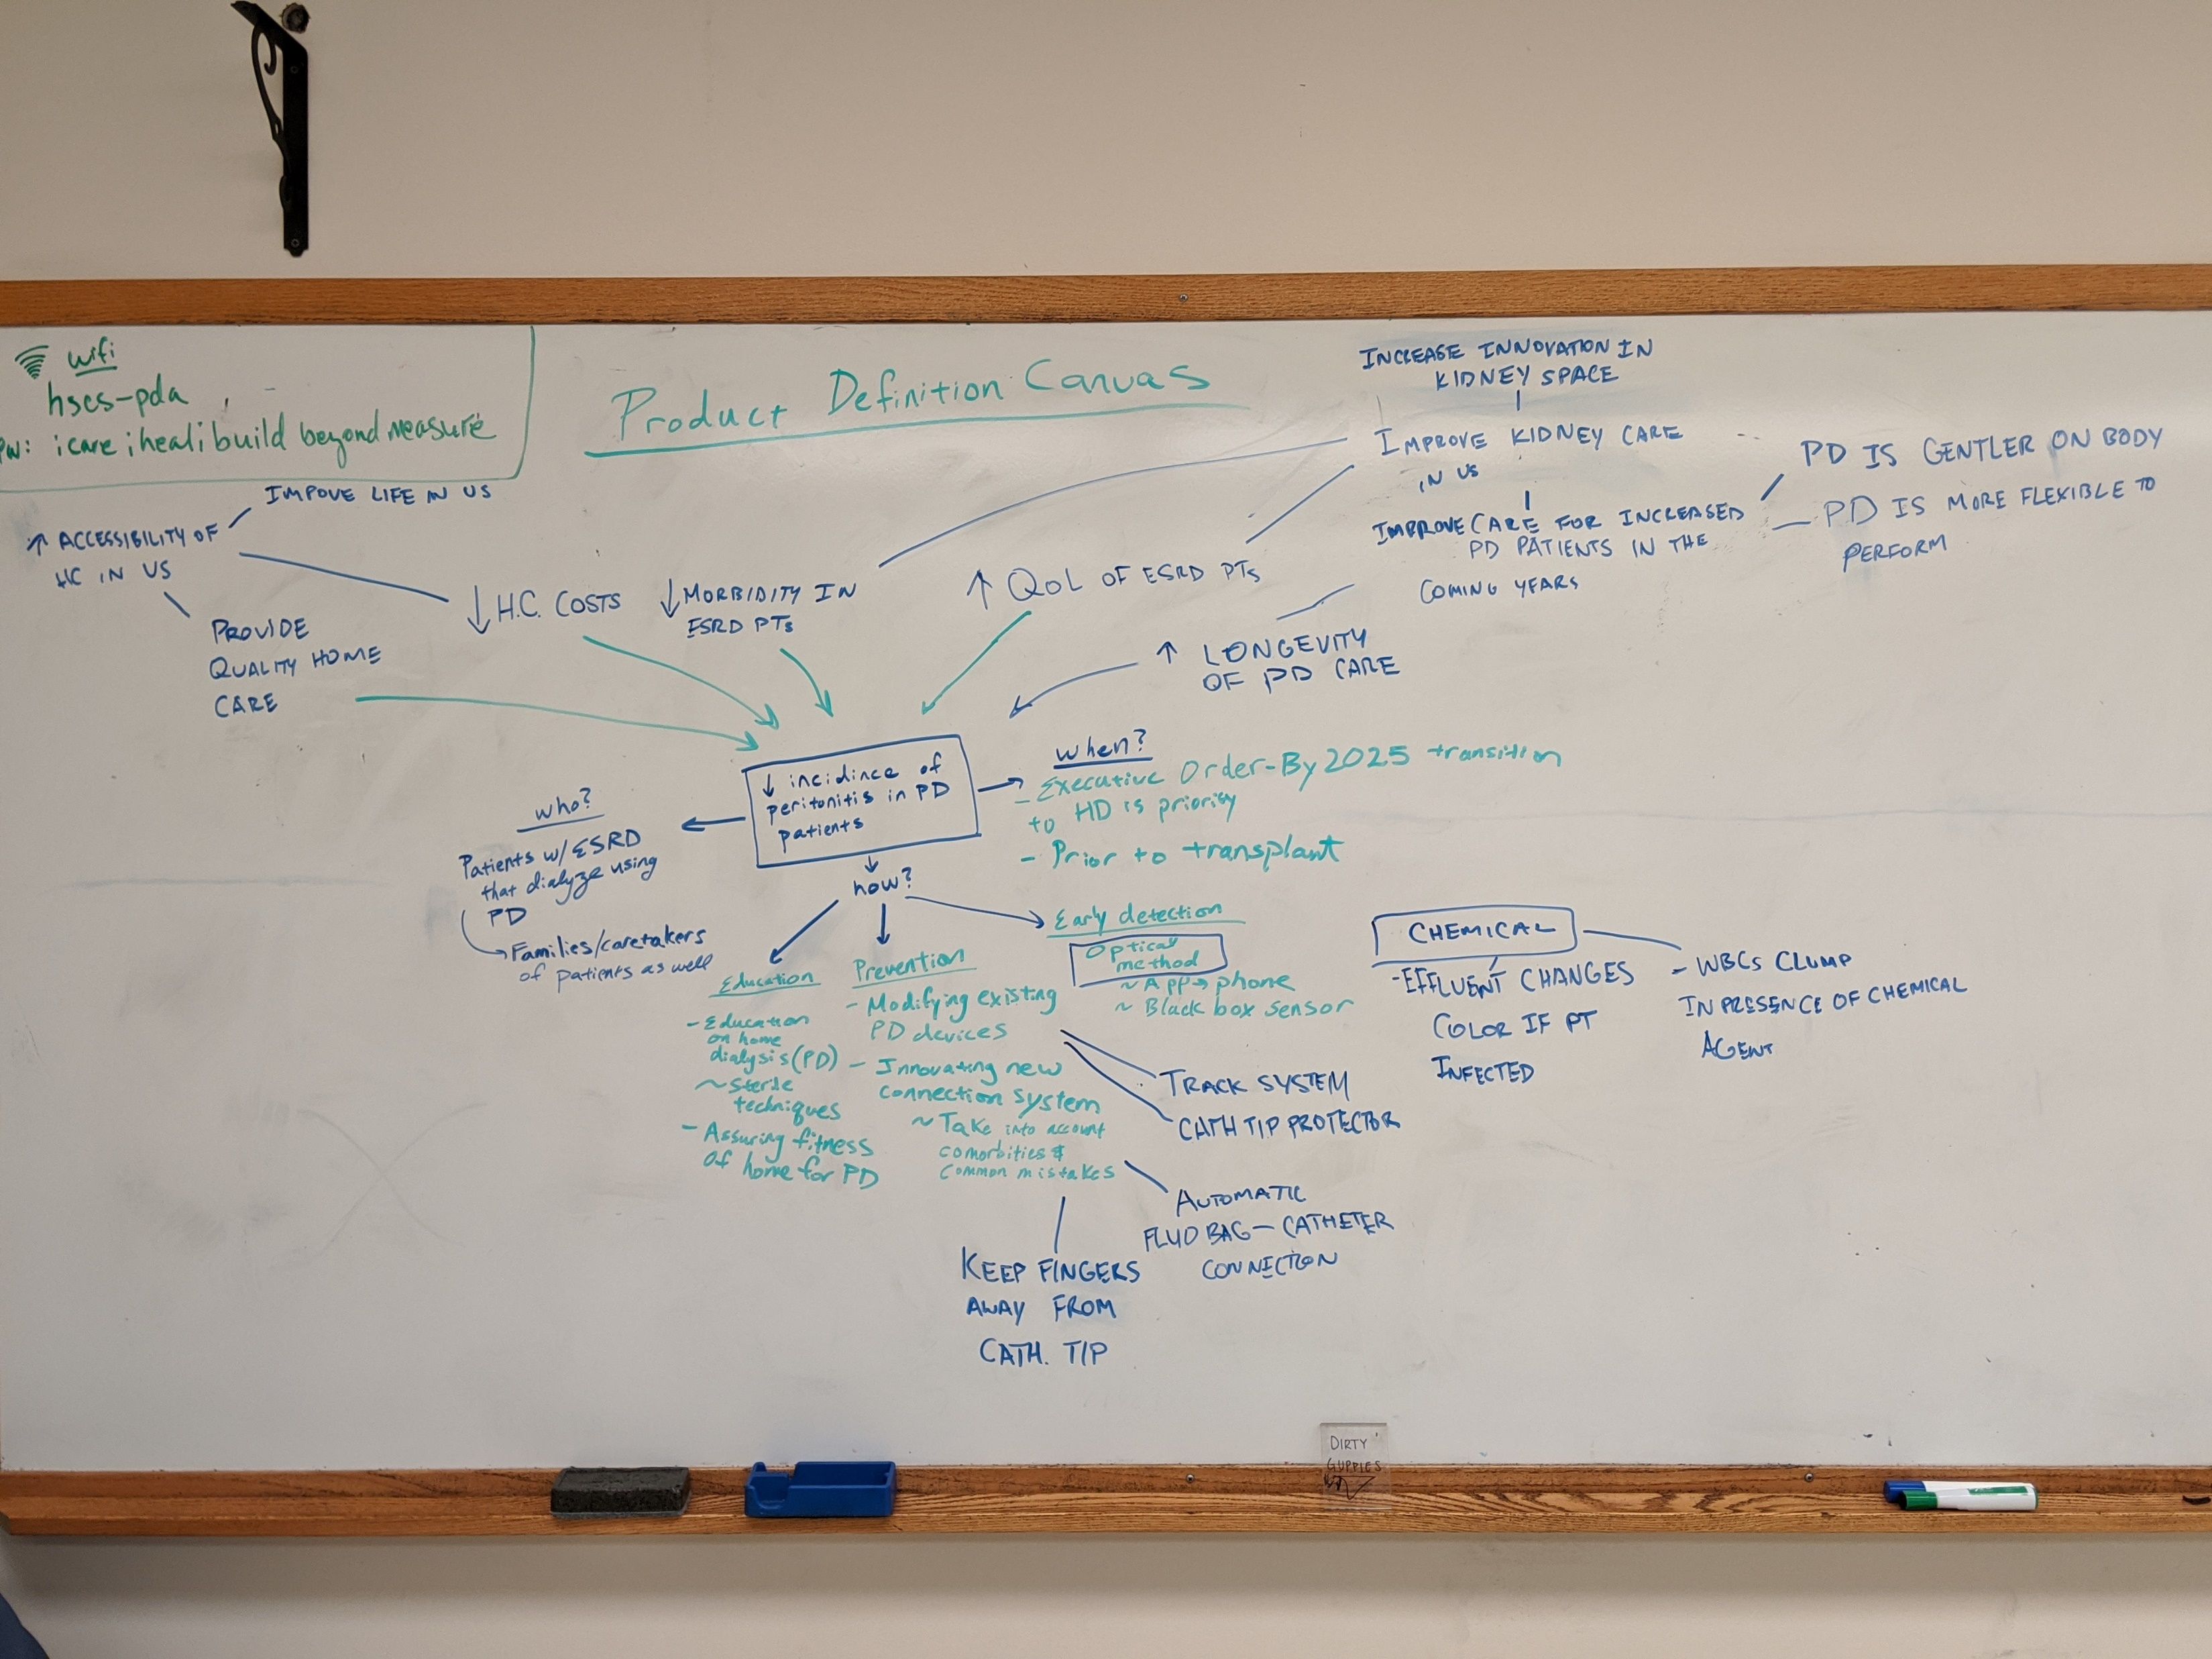 wifi
hscs-pda
PW: icareihealibuild beyondmeasure
Product Definition Canvas
INCREASE INNOVATION IN
KIDNEY SPACE
IMPROVE KIDNEY CARE
IN US
IMPROVE CARE FOR INCREASED
PD PATIENTS IN THE
COMING YEARS
PD IS GENTLER ON BODY
PD IS MORE FLEXIBLE TO
PERFORM
IMPOVE LIFE IN US
↑ ACCESSIBILITY OF
HC IN US
PROVIDE
QUALITY HOME
CARE
↓ H.C. COSTS
↓ MORBIDITY IN
ESRD PTS
↑ QOL OF ESRD PTS
↑ LONGEVITY
OF PD CARE
↓ incidince of
peritonitis in PD
patients
who?
Patients w/ ESRD
that dialyze using
PD
Families/caretakers
of patients as well
when?
- Executive Order-By 2025 transition
to HD is priority
- Prior to transplant
how?
Education
- Education
on home
dialysis (PD)
~ Sterile
techniques
- Assuring fitness
of home for PD
Prevention
- Modifying existing
PD devices
- Innovating new
connection system
~ Take into account
comorbities &
common mistakes
Early detection
Optical
method
~ App → phone
~ Black box sensor
TRACK SYSTEM
CATH TIP PROTECTOR
AUTOMATIC
FLUD BAG - CATHETER
CONNECTION
KEEP FINGERS
AWAY FROM
CATH. TIP
CHEMICAL
- EFFLUENT CHANGES
COLOR IF PT
INFECTED
- WBCS CLUMP
IN PRESENCE OF CHEMICAL
AGENT
DIRTY
GUPPIES